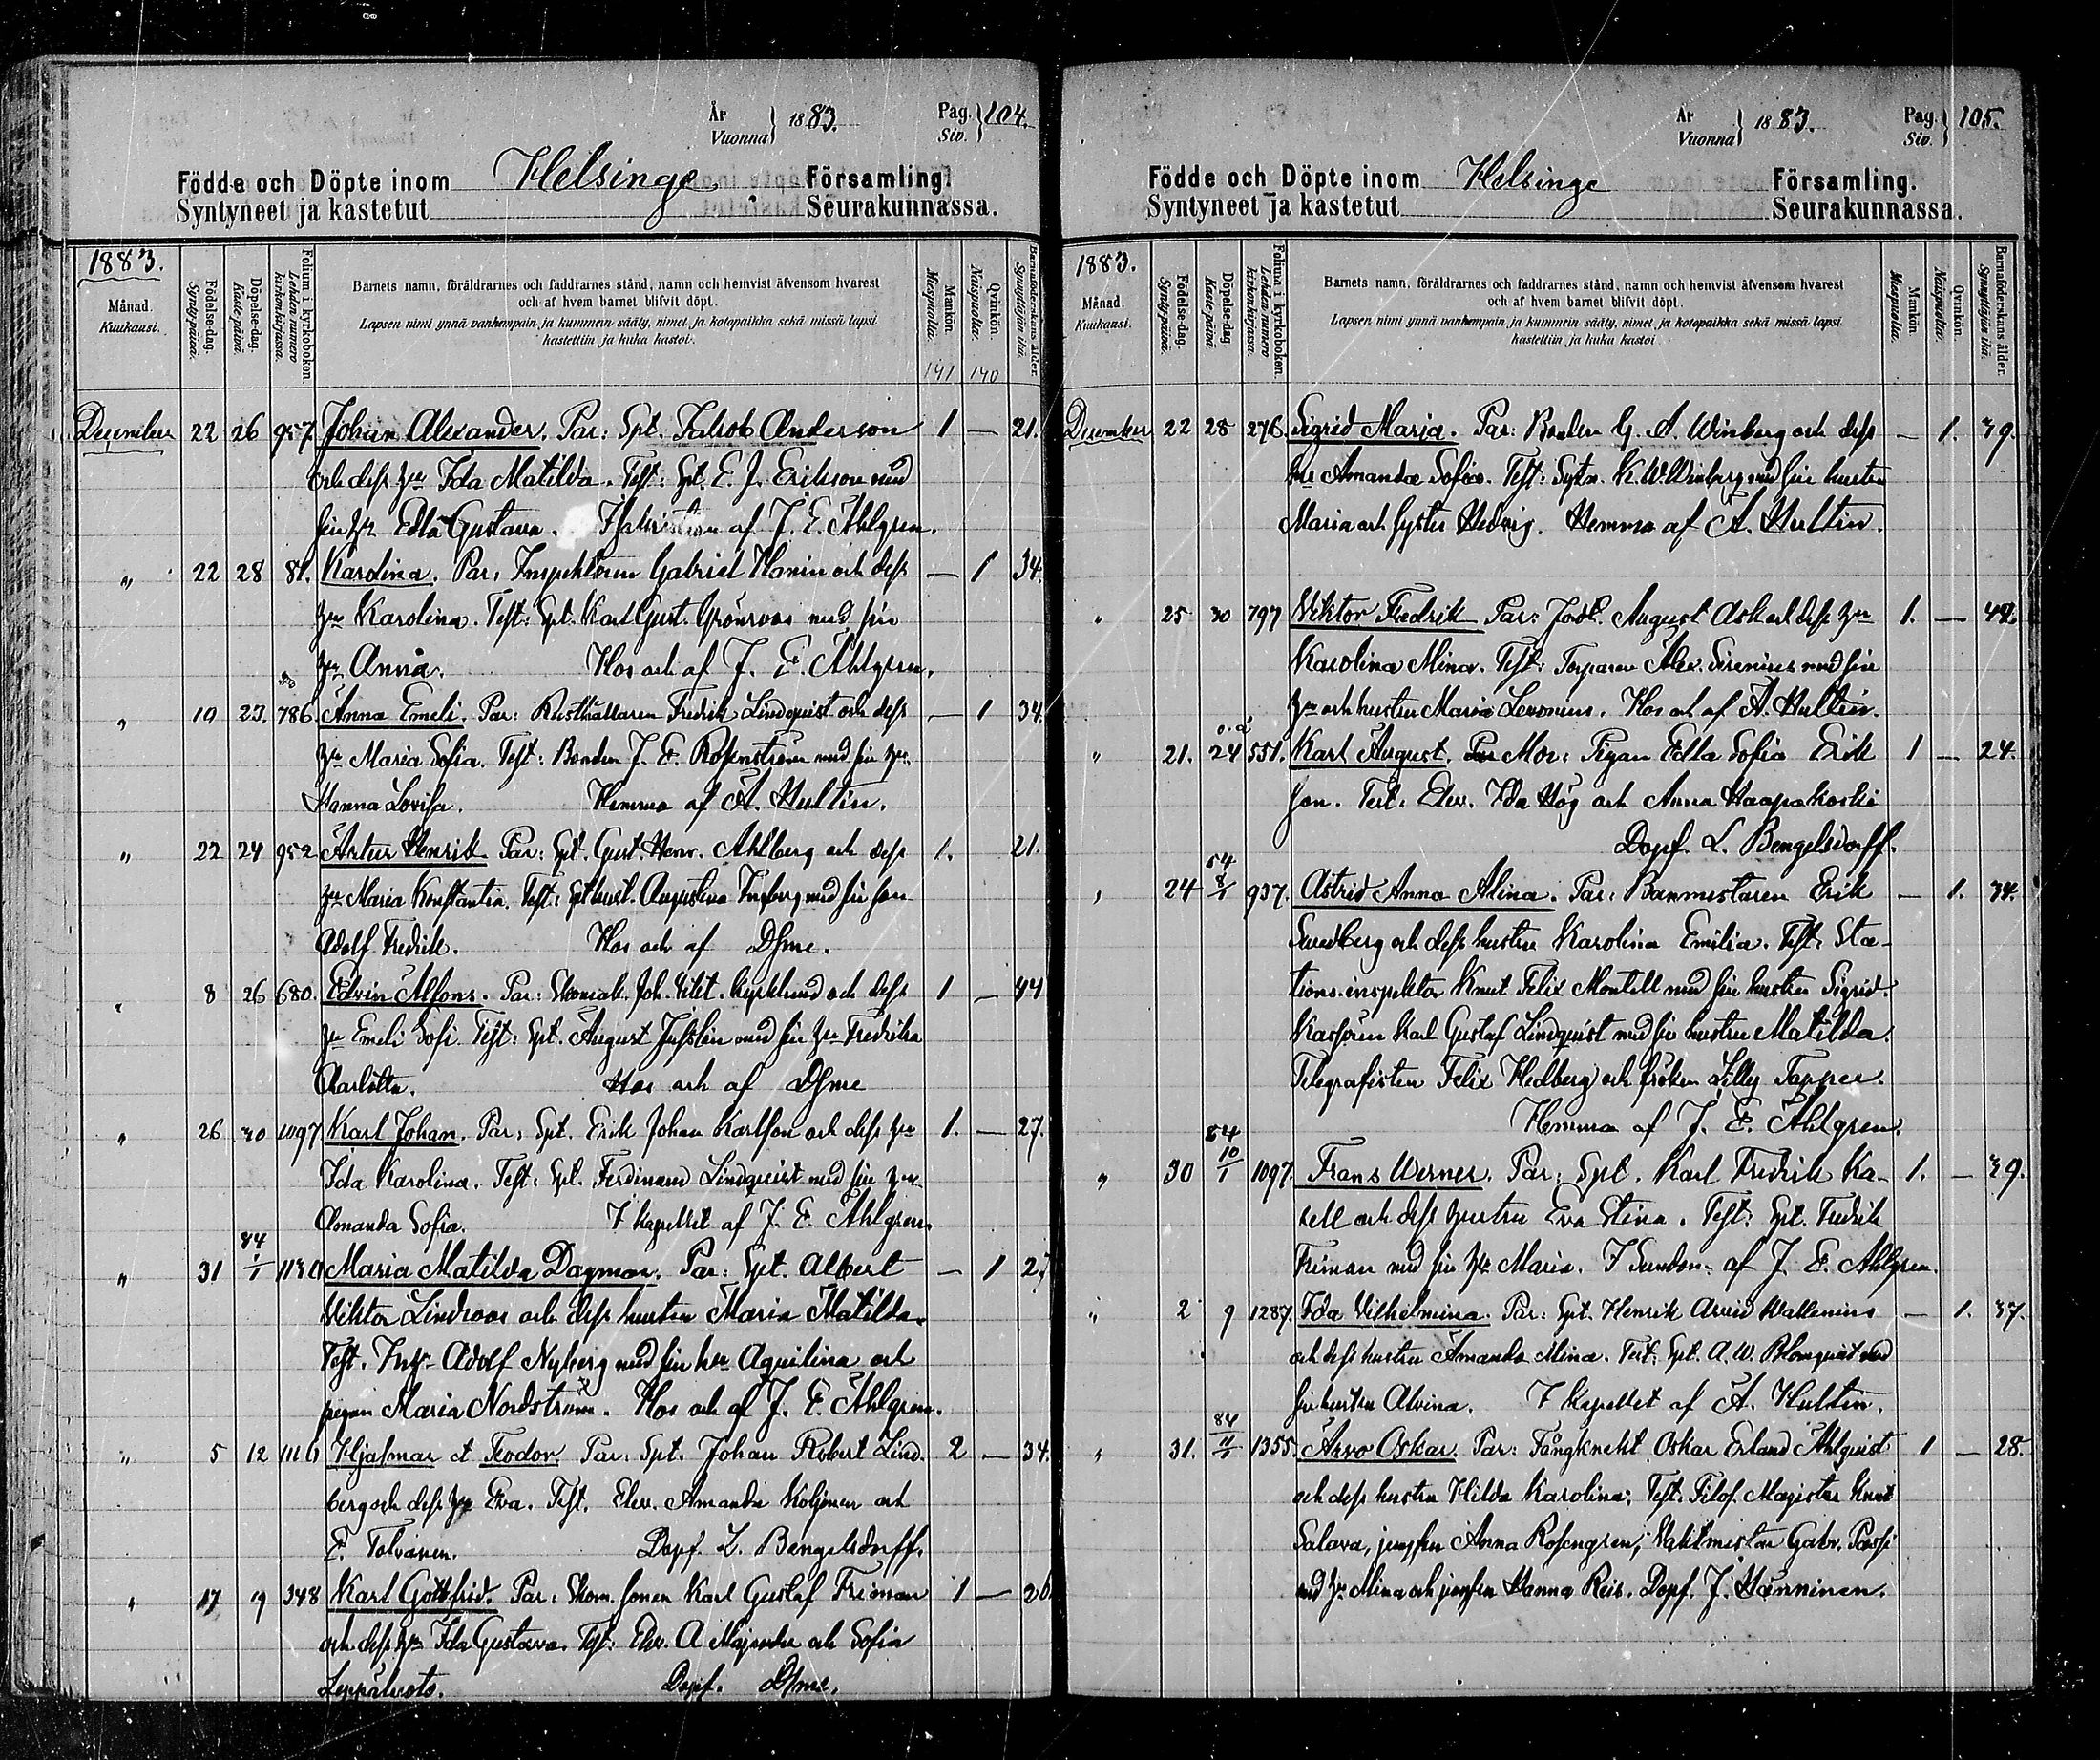 År Vuonna } 1883. Pag. Siv. } 104.
Födde och Döpte inom Helsinge Församling.
Syntyneet ja kastetut Seurakunnassa.
1883.
Månad. Kuukausi.
Födelse-dag. Synty-päivä.
Döpelse-dag. Kaste-päivä.
Folium i kyrkoboken. Lehden numero kirkonkirjassa.
Barnets namn, föräldrarnes och faddrarnes stånd, namn och hemvist äfvensom hvarest
och af hvem barnet blifvit döpt.
Lapsen nimi ynnä vanhempain ja kummein sääty, nimet ja kotopaikka sekä missä lapsi
kastettiin ja kuka kastoi.
Mankön. Miespuolia. 141
Qvinkön. Naispuolia. 140
Barnaföderskans ålder. Synnyttäjän ikä.
December 22 26 957. Johan Alexander. Par: Spt. Jakob Anderson 1 — 21.
och dess hu Ida Matilda. Test: Spt. E. J. Erikson med
sin hu Edla Gustava. af J. E. Åhlgren.
" 22 28 81. Karolina. Par: Inspektoren Gabriel Hanin och dess — 1 34.
hu Karolina. Test: Spt. Karl Gust. Grönroos med sin
hu Anna. Hos och af J. E. Åhlgren.
" 19 23. 786. Anna Emeli. Par: Rusthållaren Fredrik Lindquist och dess — 1 34.
hu Maria Sofia. Test: Bonden J. E. Rosenström med sin hu
Hanna Lovisa. Hemma af A. Hultin.
" 22 24 952 Artur Henrik. Par: Spt. Gust. Henr. Ahlberg och dess 1. 21.
hu Maria Konstantia. Test: Spt hust. Augustina Ingberg med sin son
Adolf Fredrik. Hos och af Dsme.
" 8 26 680. Edvin Alfons. Par: Skomak. Joh. Vilt. Kyrklund och dess 1 — 44
hu Emeli Sofi. Test: Spt. August Jusslin med sin hu Fredrika
Charlotta. Hos och af Dsme
" 26 30 1097 Karl Johan. Par: Spt. Erik Johan Karlson och dess hu 1. — 27.
Ida Karolina. Test: Spt. Ferdinand Lindqvist med sin hu
Amanda Sofia. I kapellet af J. E. Åhlgren.
" 31 84 1/1 1130 Maria Matilda Dagmar. Par: Spt. Albert — 1 27
Viktor Lindroos och dess hustru Maria Matilda.
Test. Adolf Nyberg med sin hu Aquilina och
pigan Maria Nordström. Hos och af J. E. Åhlgren.
" 5 12 1116 Hjalmar et Teodor. Par: Spt. Johan Robert Lind- 2 — 34.
berg och dess hu Eva. Test. Elev. Amanda Koljonen och
E. Tolvanen. Dopf. L. Bengelsdorff.
" 17 19 348 Karl Gottfrid. Par: Skom. sonen Karl Gustaf Friman 1 — 26
och dess hu Ida Gustava. Test: Elev. A och Sofia
Leppäluoto. Dopf. Dsme.
År Vuonna } 1883. Pag. Siv. } 105.
Födde och Döpte inom Helsinge Församling.
Syntyneet ja kastetut Seurakunnassa.
1883.
Månad. Kuukausi.
Födelse-dag. Synty-päivä.
Döpelse-dag. Kaste-päivä.
Folium i kyrkoboken. Lehden numero kirkonkirjassa.
Barnets namn, föräldrarnes och faddrarnes stånd, namn och hemvist äfvensom hvarest
och af hvem barnet blifvit döpt.
Lapsen nimi ynnä vanhempain ja kummein sääty, nimet ja kotopaikka sekä missä lapsi
kastettiin ja kuka kastoi
Mankön. Miespuolia.
Qvinkön. Naispuolia.
Barnaföderskans ålder. Synnyttäjän ikä.
December 22 28 276. Sigrid Maria. Par: Bonden G. A. Winberg och dess — 1. 39.
hu Amanda Sofia. Test: K. W. Winberg med sin hustru
Maria och syster Hedvig. Hemma af A. Hultin.
" 25 30 797 Viktor Fredrik Par: August Ask och dess hu 1. — 44.
Karolina Mina. Test: Torparen Alex. Sirenius med sin
hu och hustru Maria Levonius. Hos och af A. Hultin.
" 21. 24 551. Karl August. Mor: Pigan Edla Sofia Erik 1 — 24.
son. Test: Elev. Ida Hög och Anna Haapakoski
Dopf. L. Bengelsdorff.
" 24 84 937. Astrid Anna Alina. Par: Banmästaren Erik — 1. 34.
Svedberg och dess hustru Karolina Emilia. Test: Sta-
tions-inspektor Knut Felix Montell med sin hustru Sigrid.
Kassören Karl Gustaf Lindquist med sin hustru Matilda.
Telegrafisten Felix Hedberg och fröken Lilly Tapper.
Hemma af J. E. Åhlgren.
" 30 84 10/1 1097. Frans Werner. Par: Spt. Karl Fredrik Ka- 1. — 39.
rell och dess hustru Eva Stina. Test: Spt. Fredrik
Friman med sin hu Maria. I af J. E. Åhlgren.
" 2 9 1287. Ida Vilhelmina. Par: Spt. Henrik Arvid Wallenius — 1. 37.
och dess hustru Amanda Mina. Test: Spt. A. W. Blomquist med
sin hustru Alvina. I kapellet af A. Hultin.
" 31. 84 1355. Arvo Oskar. Par: Fångknekt Oskar Erland Åhlquist 1 — 28.
och dess hustru Hilda Karolina; Test: Filof. Magister Knut
Salava, jungfru Anna Rosengren; Vaktmästar Gabr. Passi
med hu Mina och jungfru Hanna Reis. Dopf. J. Hänninen.